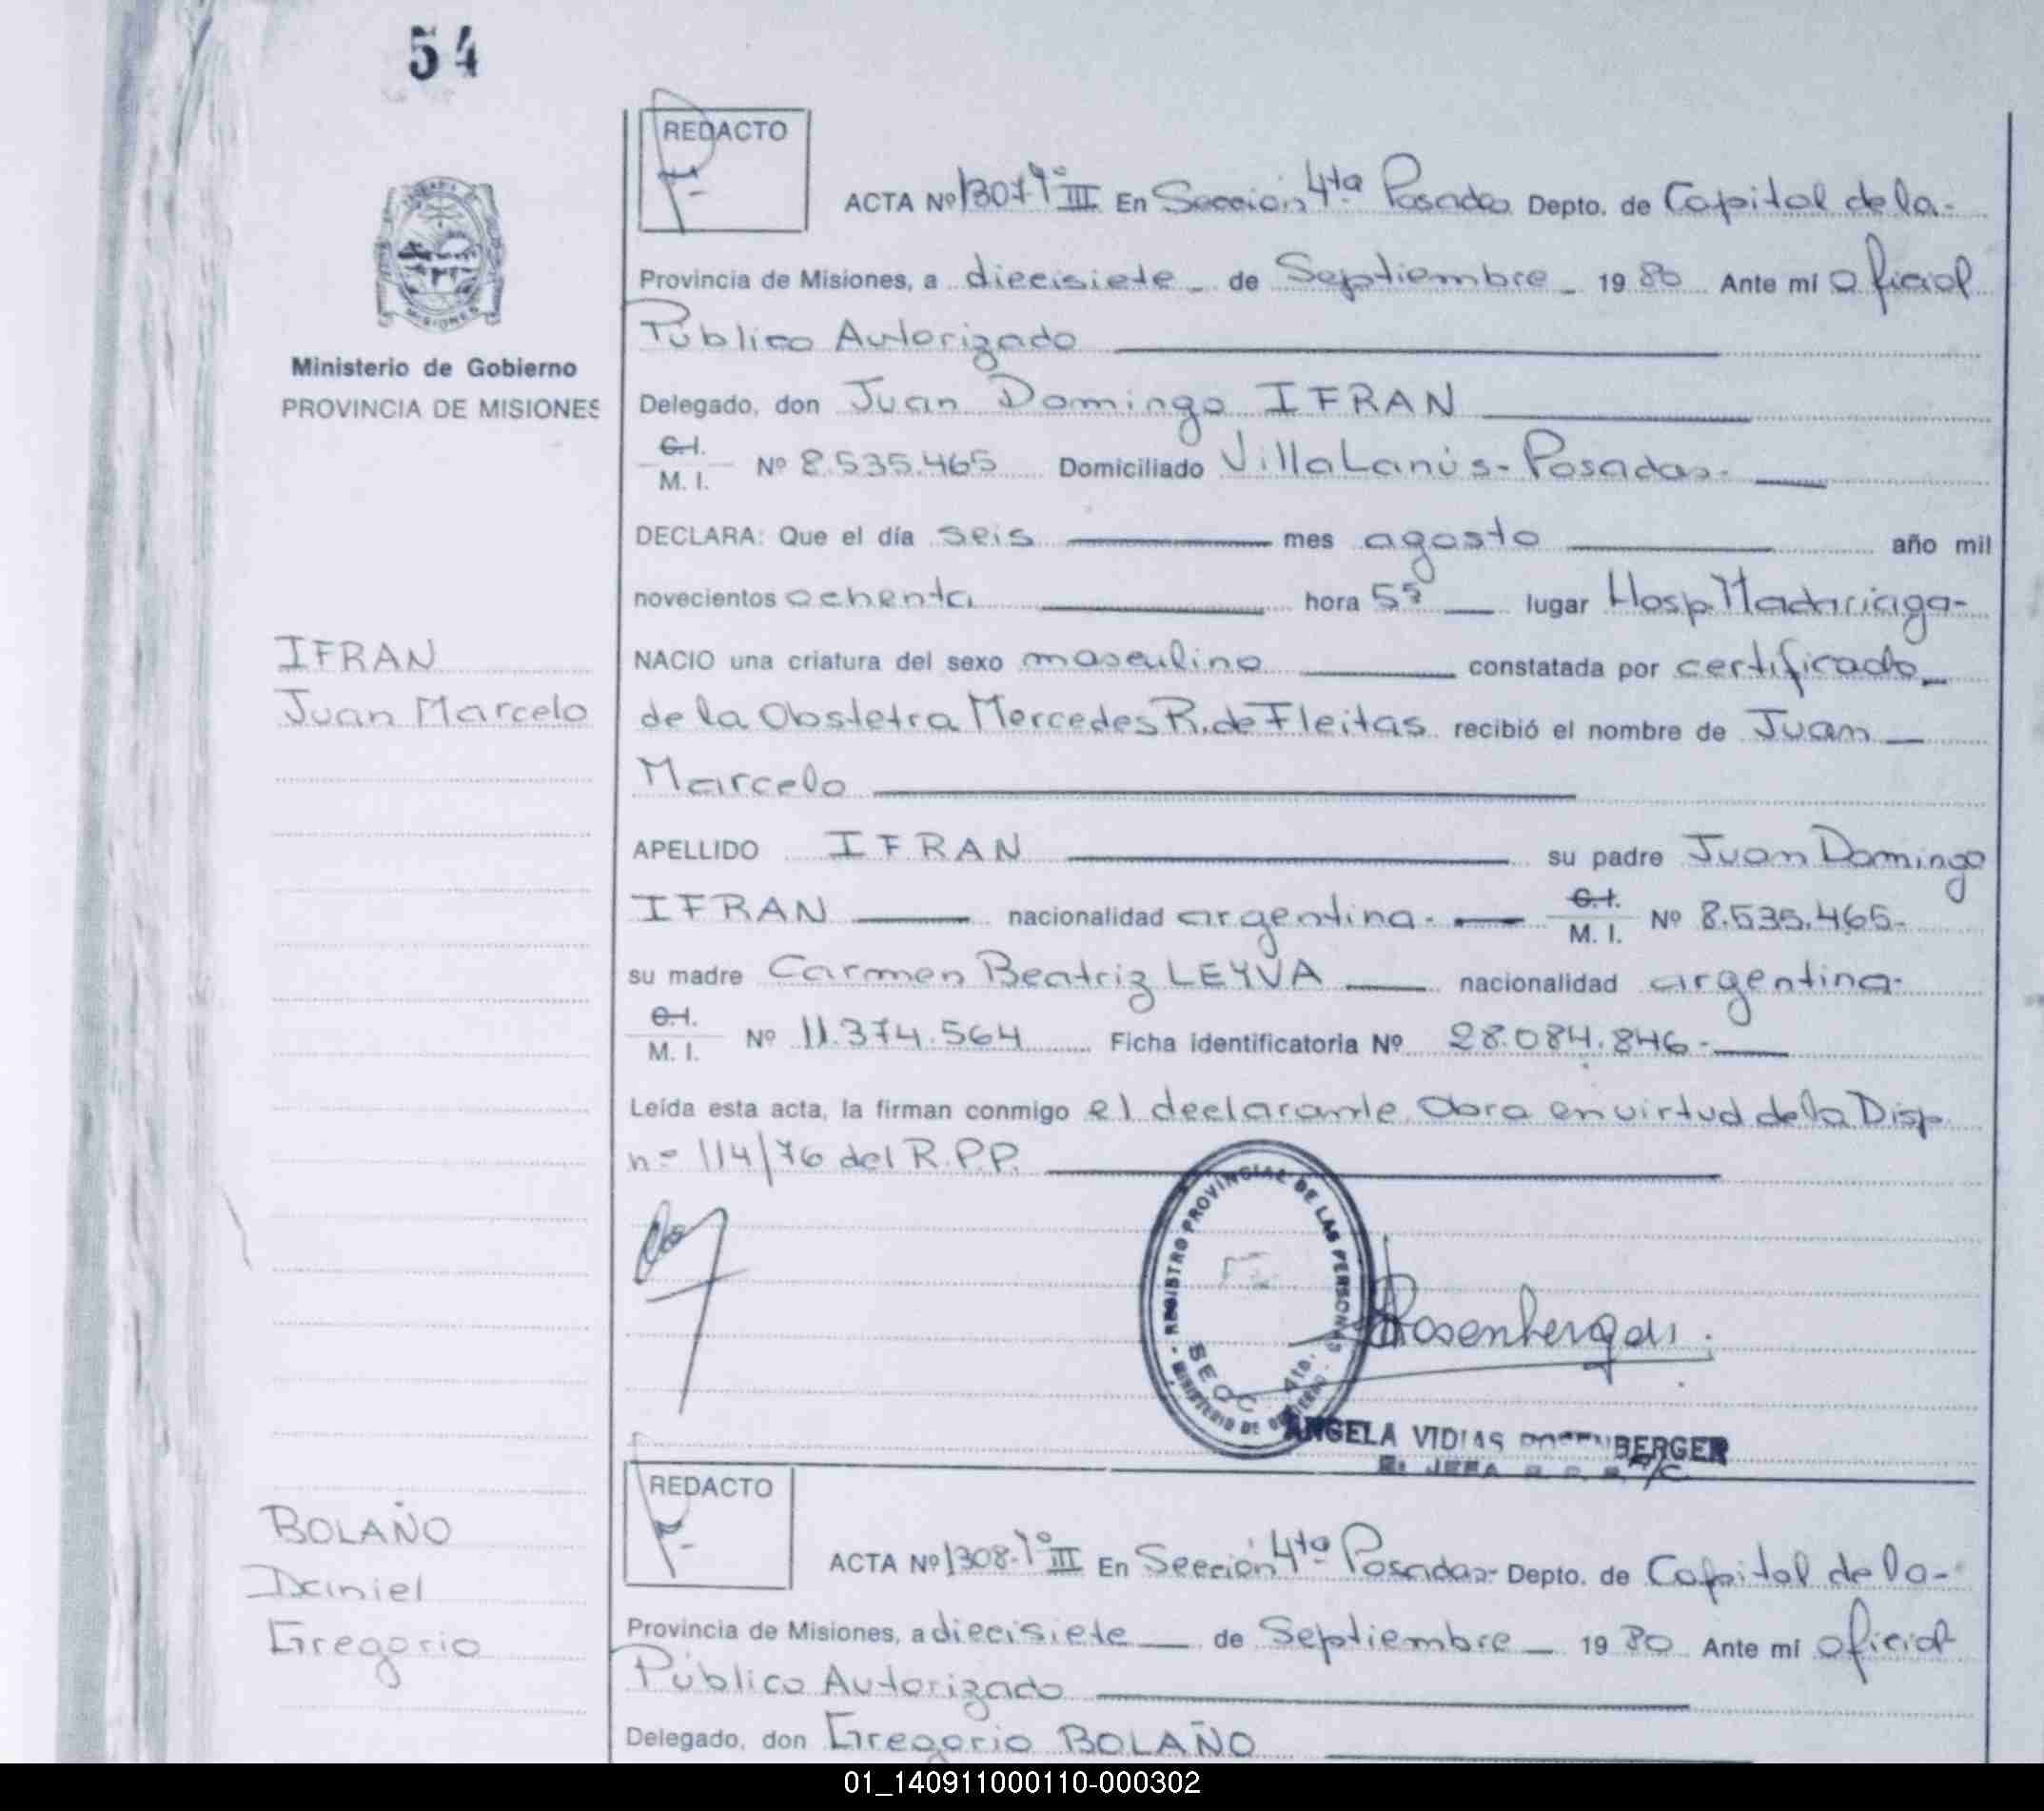 54
REDACTO
ACTA Nº 1307 Tº III En Sección 4ta Posadas Depto. de Capital de la-
Provincia de Misiones, a diecisiete de Septiembre 1980 Ante mí Oficial
Público Autorizado
Ministerio de Gobierno
PROVINCIA DE MISIONES
Delegado, don Juan Domingo IFRAN
C.I.
M. I. Nº 8.535.465 Domiciliado Villa Lanús- Posadas-
DECLARA: Que el día seis mes agosto año mil
novecientos ochenta hora 5 lugar Hosp. Madariaga-
IFRAN
Juan Marcelo
NACIO una criatura del sexo masculino constatada por certificado
de la Obstetra Mercedes R. de Fleitas recibió el nombre de Juan
Marcelo
APELLIDO IFRAN su padre Juan Domingo
IFRAN nacionalidad argentina- C.I.
M. I. Nº 8.535.465-
su madre Carmen Beatriz LEYVA nacionalidad argentina-
C.I.
M. I. Nº 11.374.564 Ficha identificatoria Nº 28.084.846-
Leída esta acta, la firman conmigo el declarante. Obra en virtud de la Disp.
nº 114/76 del R.P.P.
REGISTRO PROVINCIAL DE LAS PERSONAS
SECC. 4ta.
MINISTERIO DE GOBIERNO
ANGELA VIDIAS ROSENBERGER
JEFA
BOLAÑO
Daniel
Gregorio
REDACTO
ACTA Nº 1308- Tº III En Sección 4ta Posadas- Depto. de Capital de la-
Provincia de Misiones, a diecisiete de Septiembre 1980 Ante mí oficial
Público Autorizado
Delegado, don Gregorio BOLAÑO
01_140911000110-000302